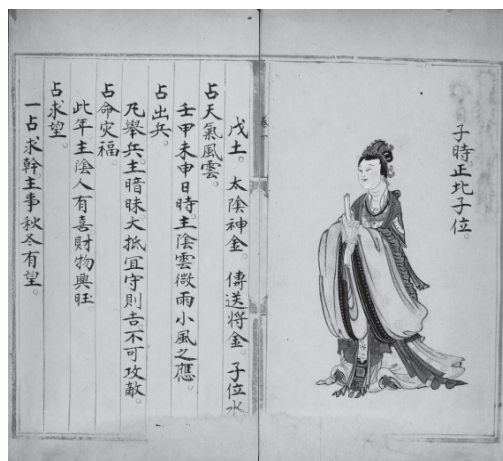 子時。正北子位。
戊土。太陰神金。傳送將金。子位水
占天氣風雲。
壬甲未申日時。主陰雲微雨小風之應。
占出兵。
凡舉兵。主暗昧。大抵宜守則吉。不可攻敵。
占命灾福。
此年主陰人有喜財物興旺
占求望。
一占求幹主事秋冬有望。